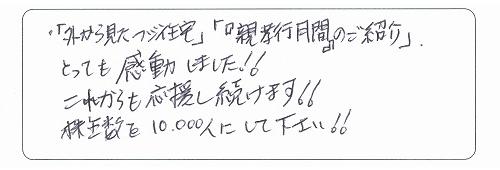 ・「外から見たフジ住宅」「『親孝行月間』のご紹介」.
とっても感動しました!!
これからも応援し続けます!!
株主数を10.000人にして下さい!!